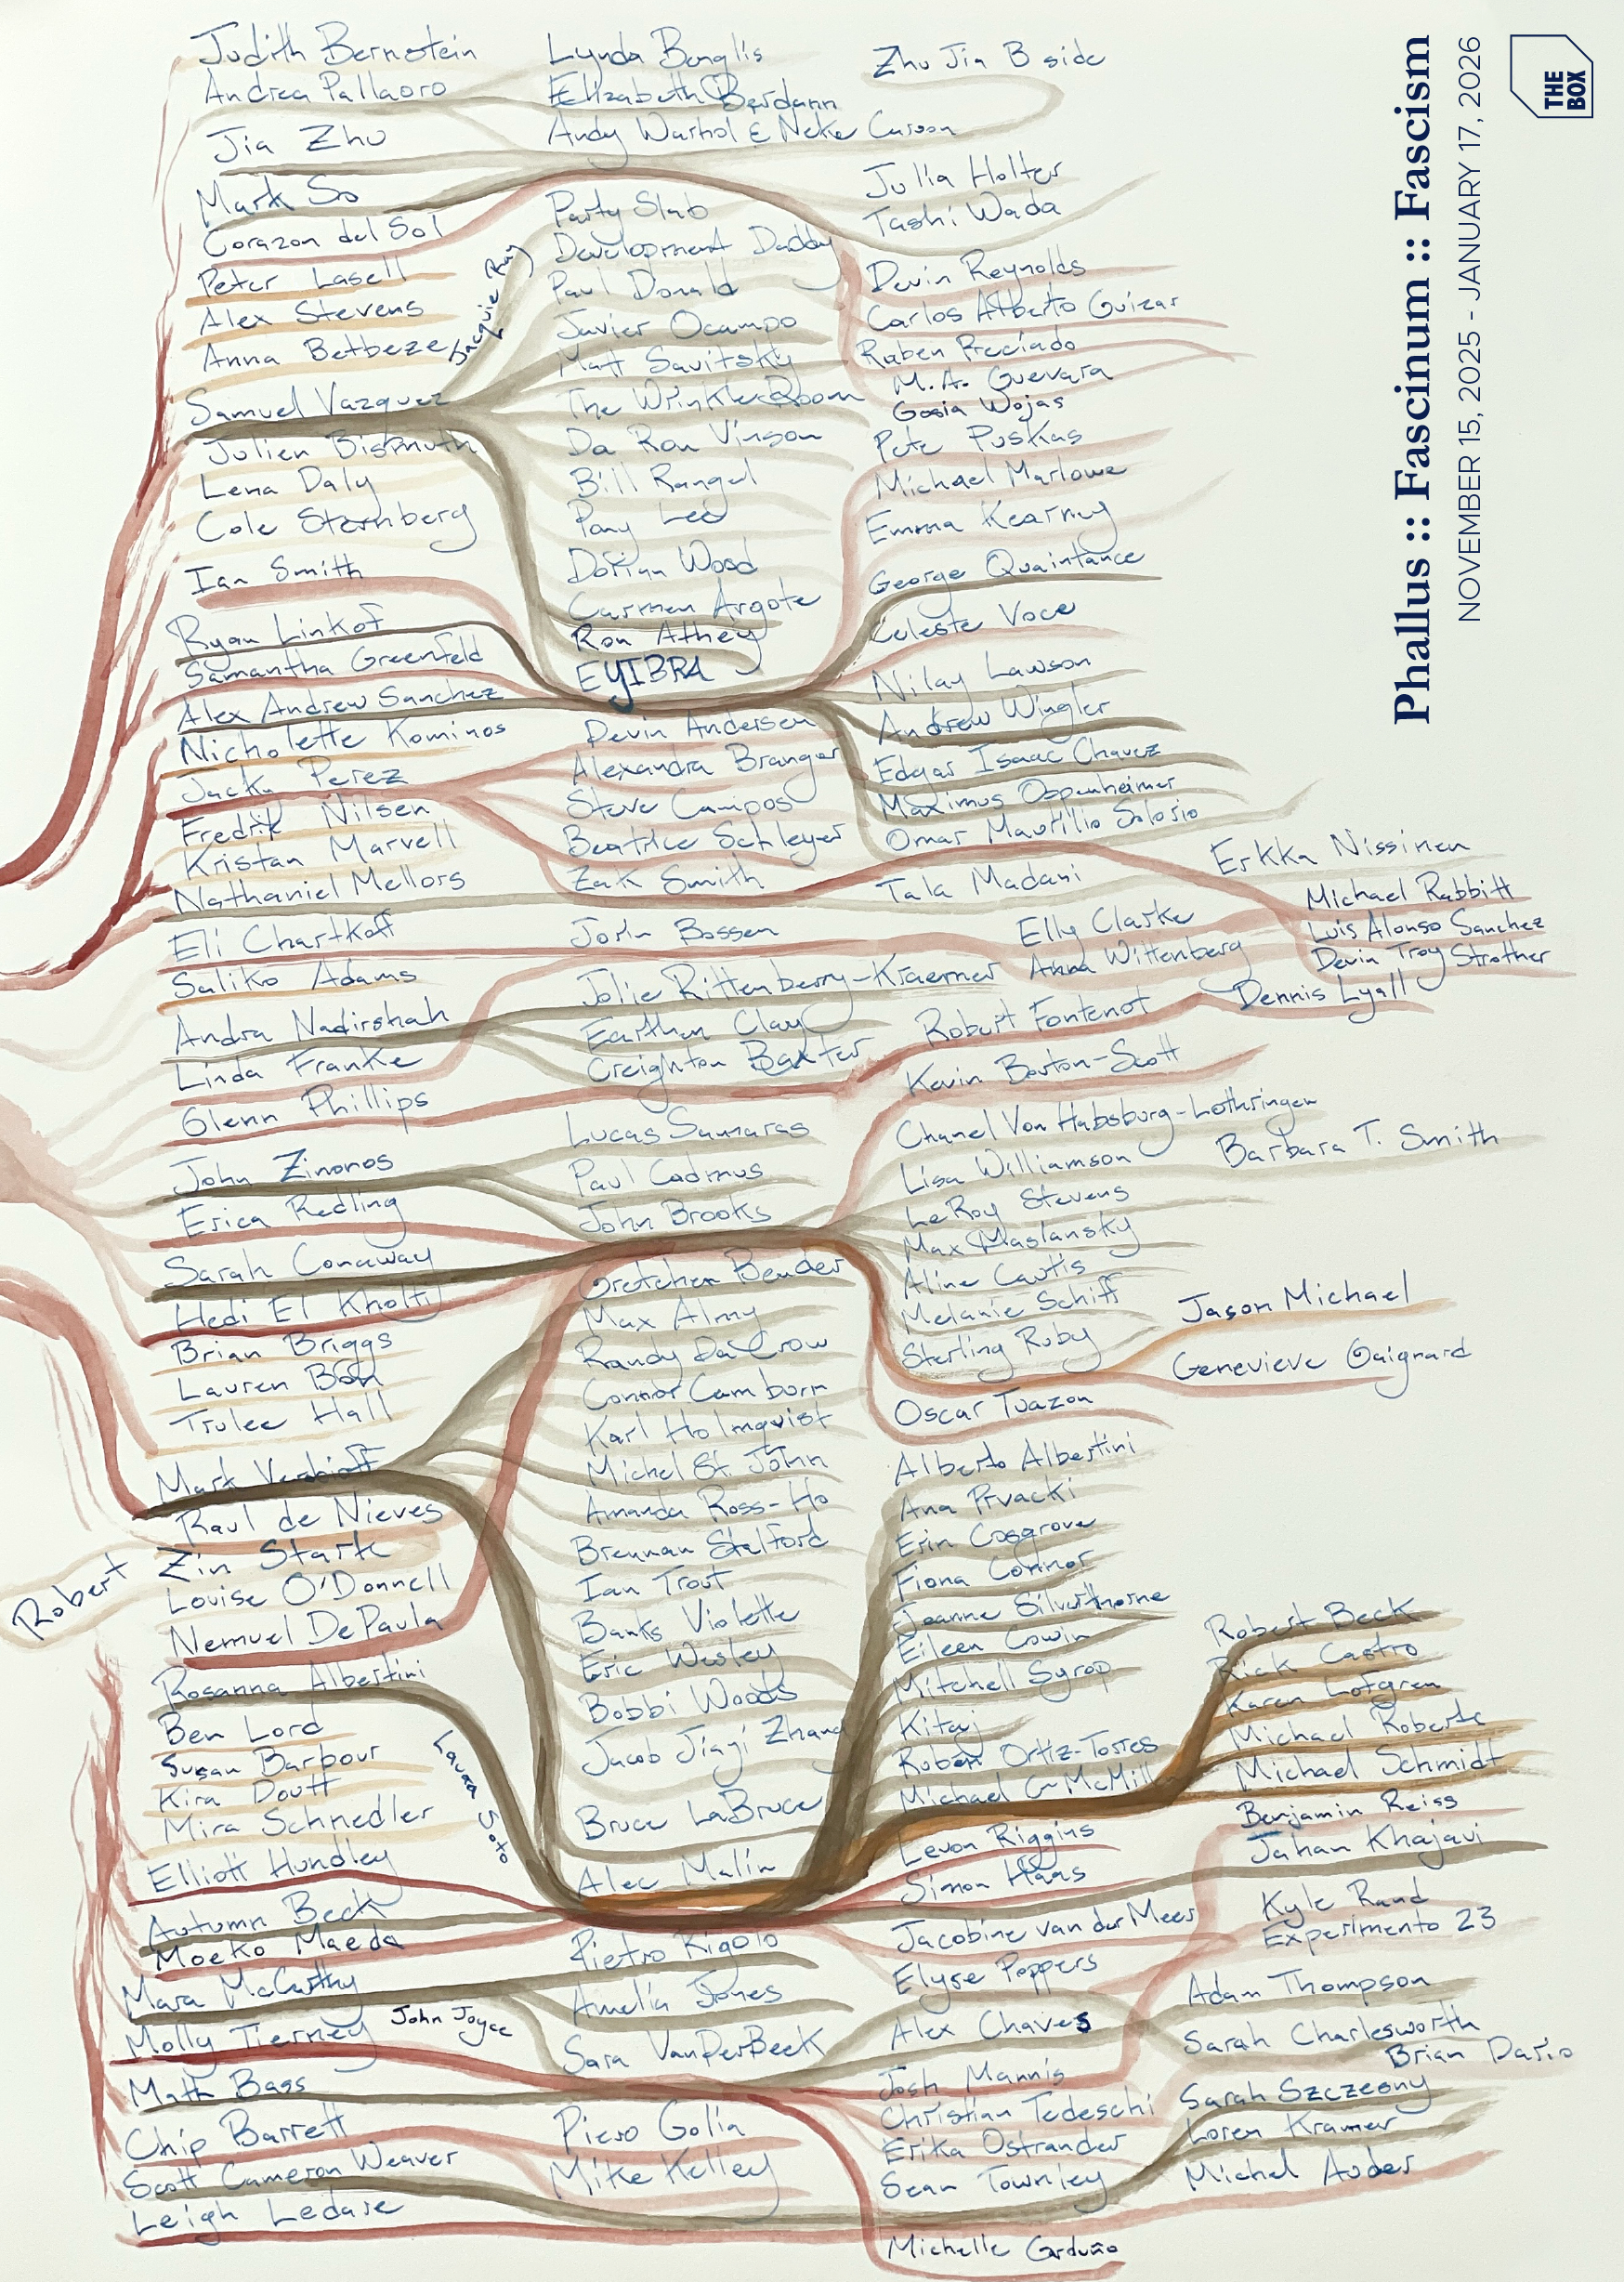 Judith Bernstein
Andrea Pallaoro
Jia Zhu
Mark So
Corazon del Sol
Peter Lasell
Alex Stevens
Anna Betbeze
Samuel Vazquez
Julien Bismuth
Lena Daly
Cole Sternberg
Ian Smith
Ryan Linkof
Samantha Greenfeld
Alex Andrew Sanchez
Nicholette Kominos
Jacky Perez
Fredrik Nilsen
Kristan Marvell
Nathaniel Mellors
Eli Chartkoff
Saliko Adams
Andra Nadirshah
Linda Franke
Glenn Phillips
John Zinonos
Erica Redling
Sarah Conaway
Hedi El Kholti
Brian Briggs
Lauren Bon
Trulee Hall
Mark Verabioff
Raul de Nieves
Zin Stark
Robert
Louise O'Donnell
Nemuel DePaula
Rosanna Albertini
Ben Lord
Susan Barbour
Kira Doutt
Mira Schnedler
Elliott Hundley
Autumn Beck
Moeko Maeda
Mara McCarthy
Molly Tierney
Math Bass
Chip Barrett
Scott Cameron Weaver
Leigh Ledare
Lynda Benglis
Elizabeth Berdann
Andy Warhol & Neke Carson
Party Slab
Development Daddy
Paul Donald
Javier Ocampo
Matt Savitsky
The Wrinkle Room
Da Ron Vinson
Bill Rangel
Pony Lee
Dorian Wood
Carmen Argote
Ron Athey
EYIBRA
Devin Andersen
Alexandra Branger
Steve Campos
Beatrice Schleyer
Zak Smith
Jorin Bossen
Jolie Rittenberry-Kraemer
Earthen Clay
Creighton Baxter
Lucas Samaras
Paul Cadmus
John Brooks
Gretchen Bender
Max Almy
Randy DaCrow
Connor Camburn
Karl Holmqvist
Michel St. John
Amanda Ross-Ho
Brennan Stalford
Ian Trout
Banks Violette
Eric Wesley
Bobbi Woods
Jacob Jiayi Zhang
Laura Soto
Bruce LaBruce
Alec Malin
Pietro Rigolo
Amelia Jones
John Joyce
Sara VanDerBeek
Piero Golia
Mike Kelley
Zhu Jia B side
Julia Holter
Tashi Wada
Devin Reynolds
Carlos Alberto Guizar
Ruben Preciado
M.A. Guevara
Gosia Wojas
Pete Puskas
Michael Marlowe
Emma Kearney
George Quaintance
Celeste Voce
Nilay Lawson
Andrew Wingler
Edgar Isaac Chavez
Maximus Oppenheimer
Omar Mautilio Solorio
Tala Madani
Elly Clarke
Anna Wittenberg
Robert Fontenot
Kevin Bouton-Scott
Chanel Von Habsburg-Lothringen
Lisa Williamson
LeRoy Stevens
Max Maslansky
Aline Cautis
Melanie Schiff
Sterling Ruby
Oscar Tuazon
Alberto Albertini
Ana Prvacki
Erin Cosgrove
Fiona Connor
Jeanne Silverthorne
Eileen Cowin
Mitchell Syrop
Kitaj
Rubén Ortiz-Torres
Michael C McMillen
Levon Riggins
Simon Haas
Jacobine van der Meer
Elyse Poppers
Alex Chaves
Josh Mannis
Christian Tedeschi
Erika Ostrander
Sean Townley
Michelle Garduño
Erkka Nissinen
Michael Rabbitt
Luis Alonso Sanchez
Devin Troy Strother
Dennis Lyall
Barbara T. Smith
Jason Michael
Genevieve Gaignard
Robert Beck
Rick Castro
Karen Lofgren
Michael Roberts
Michael Schmidt
Benjamin Reiss
Jahan Khajavi
Kyle Rand
Experimento 23
Adam Thompson
Sarah Charlesworth
Brian Dario
Sarah Szczesny
Loren Kramer
Michel Auder
Phallus :: Fascinum :: Fascism
NOVEMBER 15, 2025 - JANUARY 17, 2026
THE
BOX